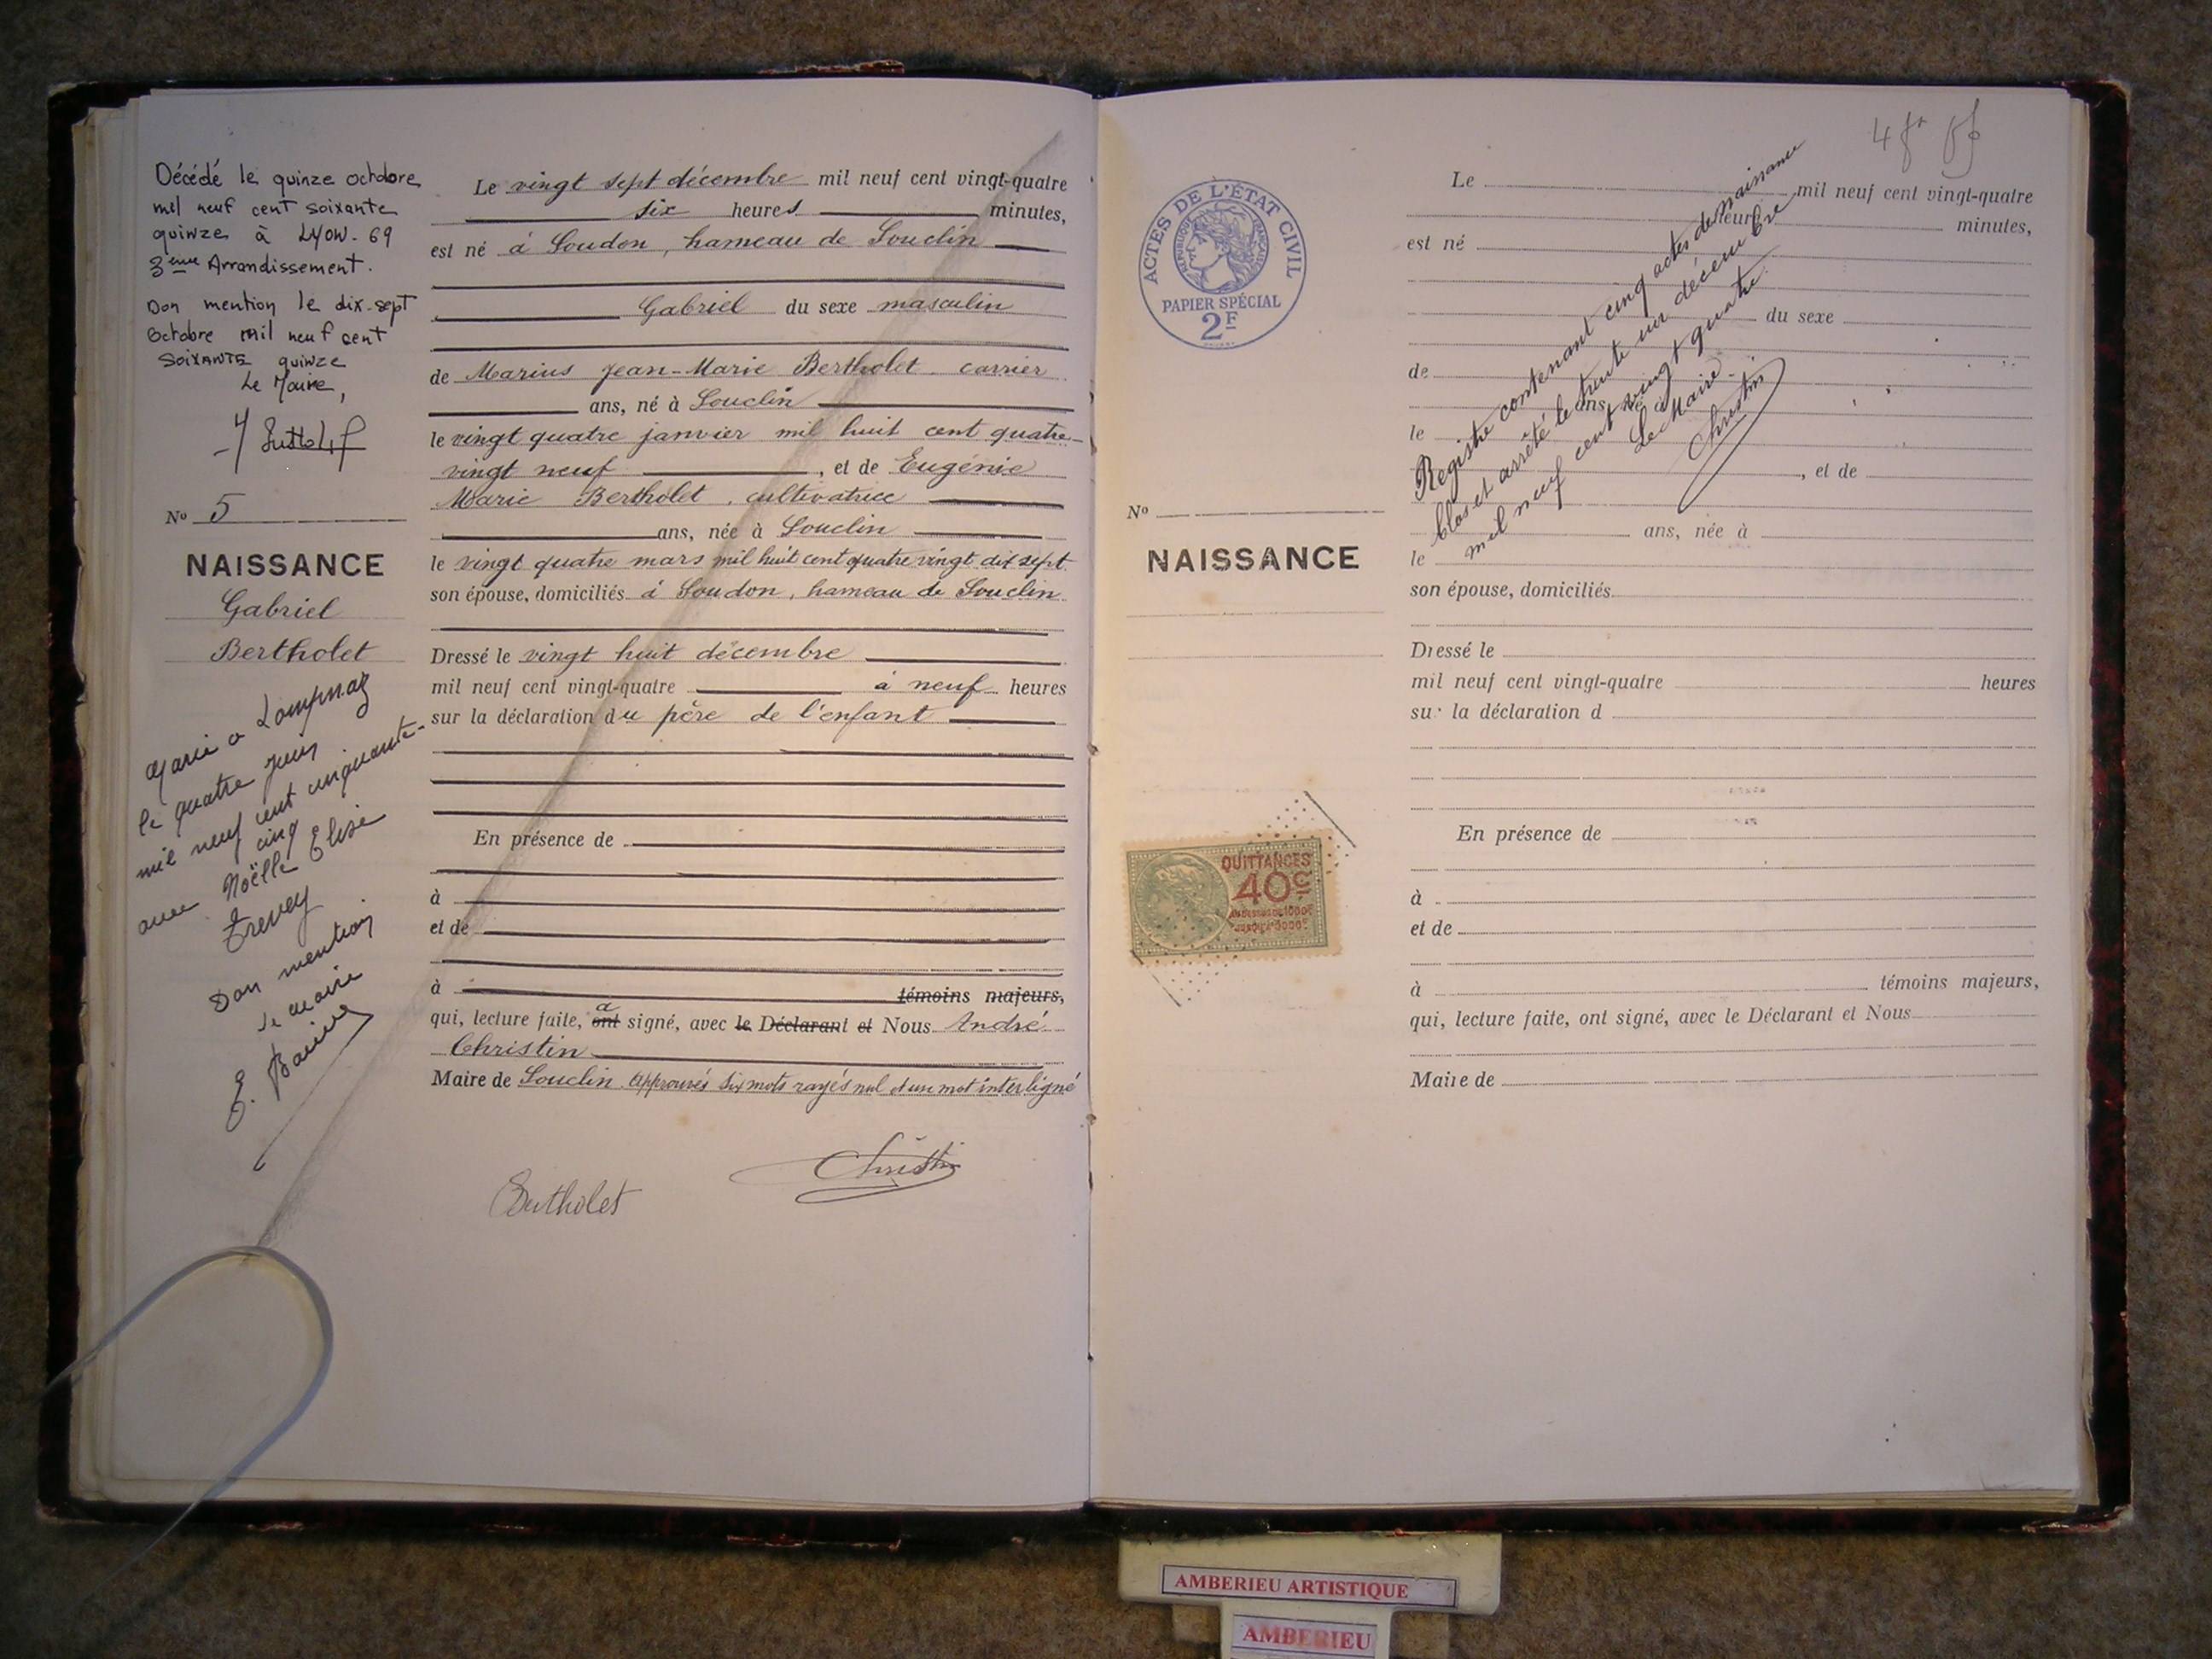 Décédé le quinze octobre
mil neuf cent soixante
quinze à LYON-69
3ème Arrondissement.
Don mention le dix-sept
Octobre mil neuf cent
SOIXANTE quinze
Le Maire,
No 5
NAISSANCE
Gabriel
Bertholet
Marié à Lompnaz
le quatre juin
mil neuf cent cinquante-
cinq
avec Noëlle Elise
Trevey
Don mention
Le Maire
Le vingt sept décembre mil neuf cent vingt-quatre
six heures minutes,
est né à Soudon, hameau de Souclin
Gabriel du sexe masculin
de Marius Jean-Marie Bertholet carrier
ans, né à Souclin
le vingt quatre janvier mil huit cent quatre-
vingt neuf, et de Eugénie
Marie Bertholet, cultivatrice
ans, née à Souclin
le vingt quatre mars mil huit cent quatre vingt dix sept
son épouse, domiciliés à Soudon, hameau de Souclin
Dressé le vingt huit décembre
mil neuf cent vingt-quatre à neuf heures
sur la déclaration du père de l'enfant
En présence de
à
et de
à témoins majeurs,
a
qui, lecture faite, ont signé, avec le Déclarant et Nous André
Christin
Maire de Souclin. Approuvés six mots rayés nul et un mot interligné
Bertholet
Christin
ACTES DE L'ÉTAT CIVIL
RÉPUBLIQUE FRANÇAISE
PAPIER SPÉCIAL
2F
No
NAISSANCE
QUITTANCES
40c
Le mil neuf cent vingt-quatre
heure minutes,
est né
du sexe
de
ans, né à
le
, et de
ans, née à
le
son épouse, domiciliés
Dressé le
mil neuf cent vingt-quatre heures
sur la déclaration d
En présence de
à
et de
à témoins majeurs,
qui, lecture faite, ont signé, avec le Déclarant et Nous
Maire de
Registre contenant cinq actes de naissance
clos et arrêté le trente un décembre
mil neuf cent vingt quatre.
Le Maire
Christin
AMBERIEU ARTISTIQUE
AMBERIEU